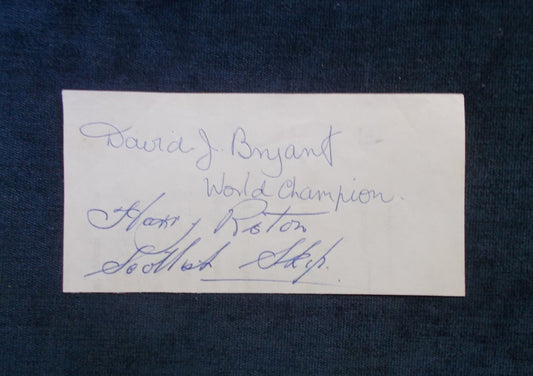 David J. Bryant
World Champion.
Harry Reston
Scottish Skip.